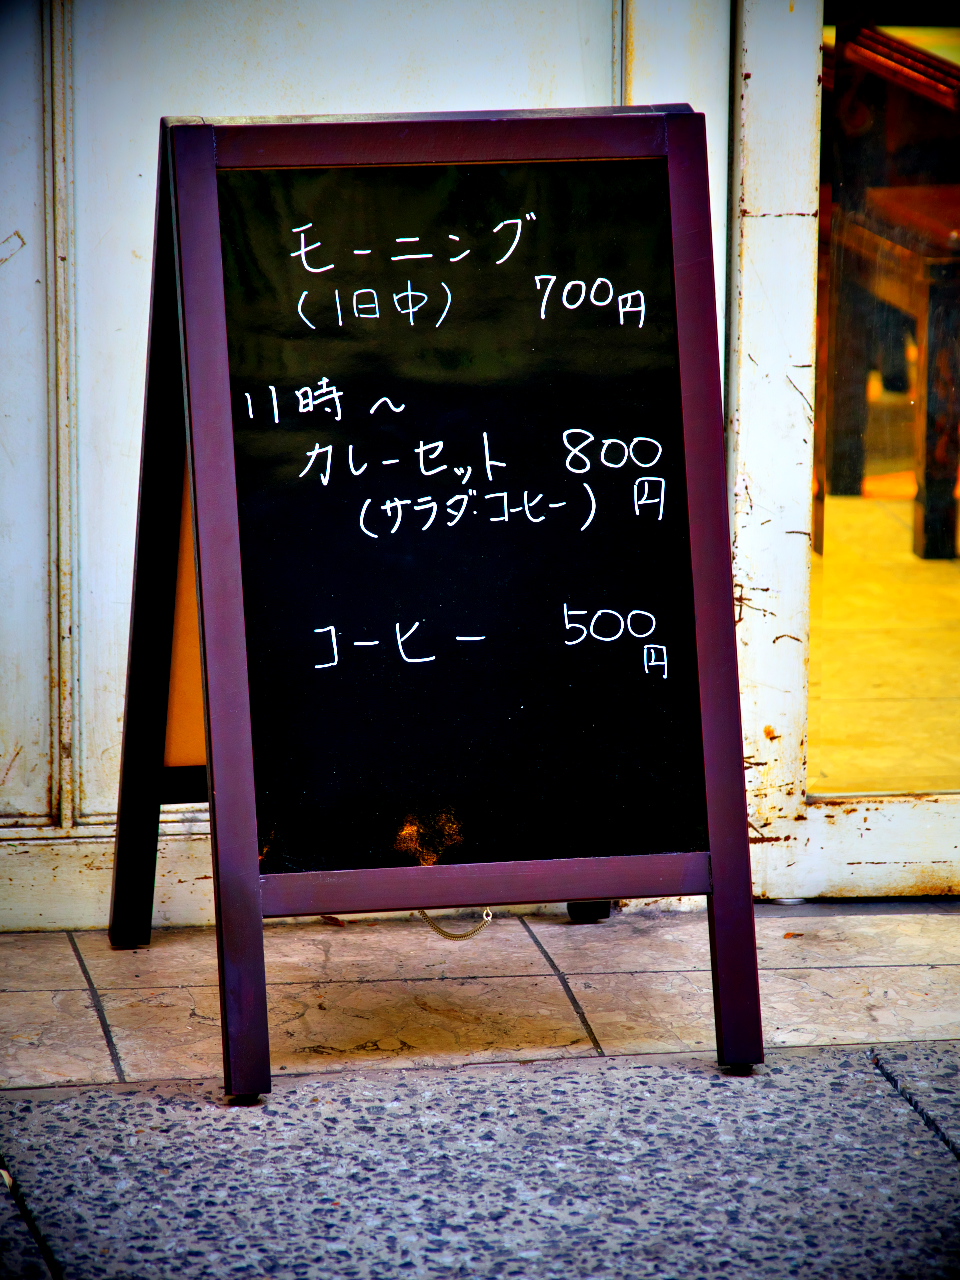 モーニング
(1日中) 700円
11時〜
カレーセット 800円
(サラダ・コーヒー)
コーヒー 500円